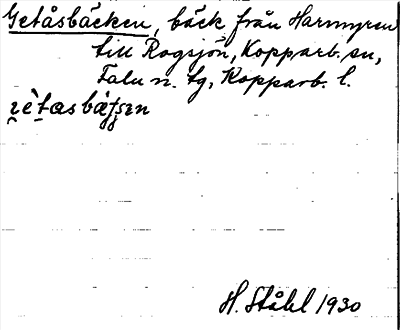 Getåsbäcken, bäck från Harmyren
till Rogsjön, Kopparb. sn,
Falu n. tg, Kopparb. l.
H. Ståhl 1930